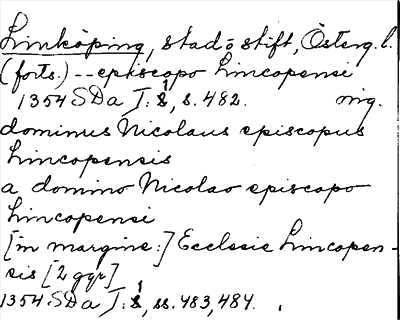 Linköping, stad o stift, Österg. l.
(forts.) -- episcopo Lincopensi
1354 SDa I: 1, s. 482. orig.
dominus Nicolaus episcopus
Lincopensis
a domino Nicolao episcopo
Lincopensi
[in margine:] Ecclesie Lincopen-
sis [2 ggr]
1354 SDa I: 1, ss. 483, 484.